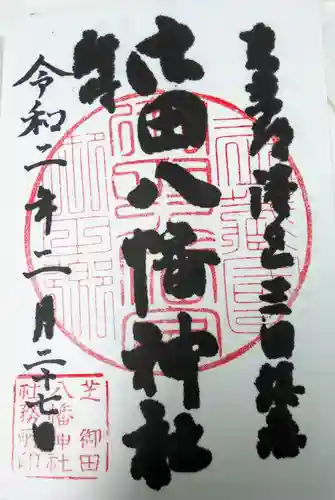 東京都港区三田鎮座
御田八幡神社
令和二年二月二十七日
芝御田
八幡神社
社務所印